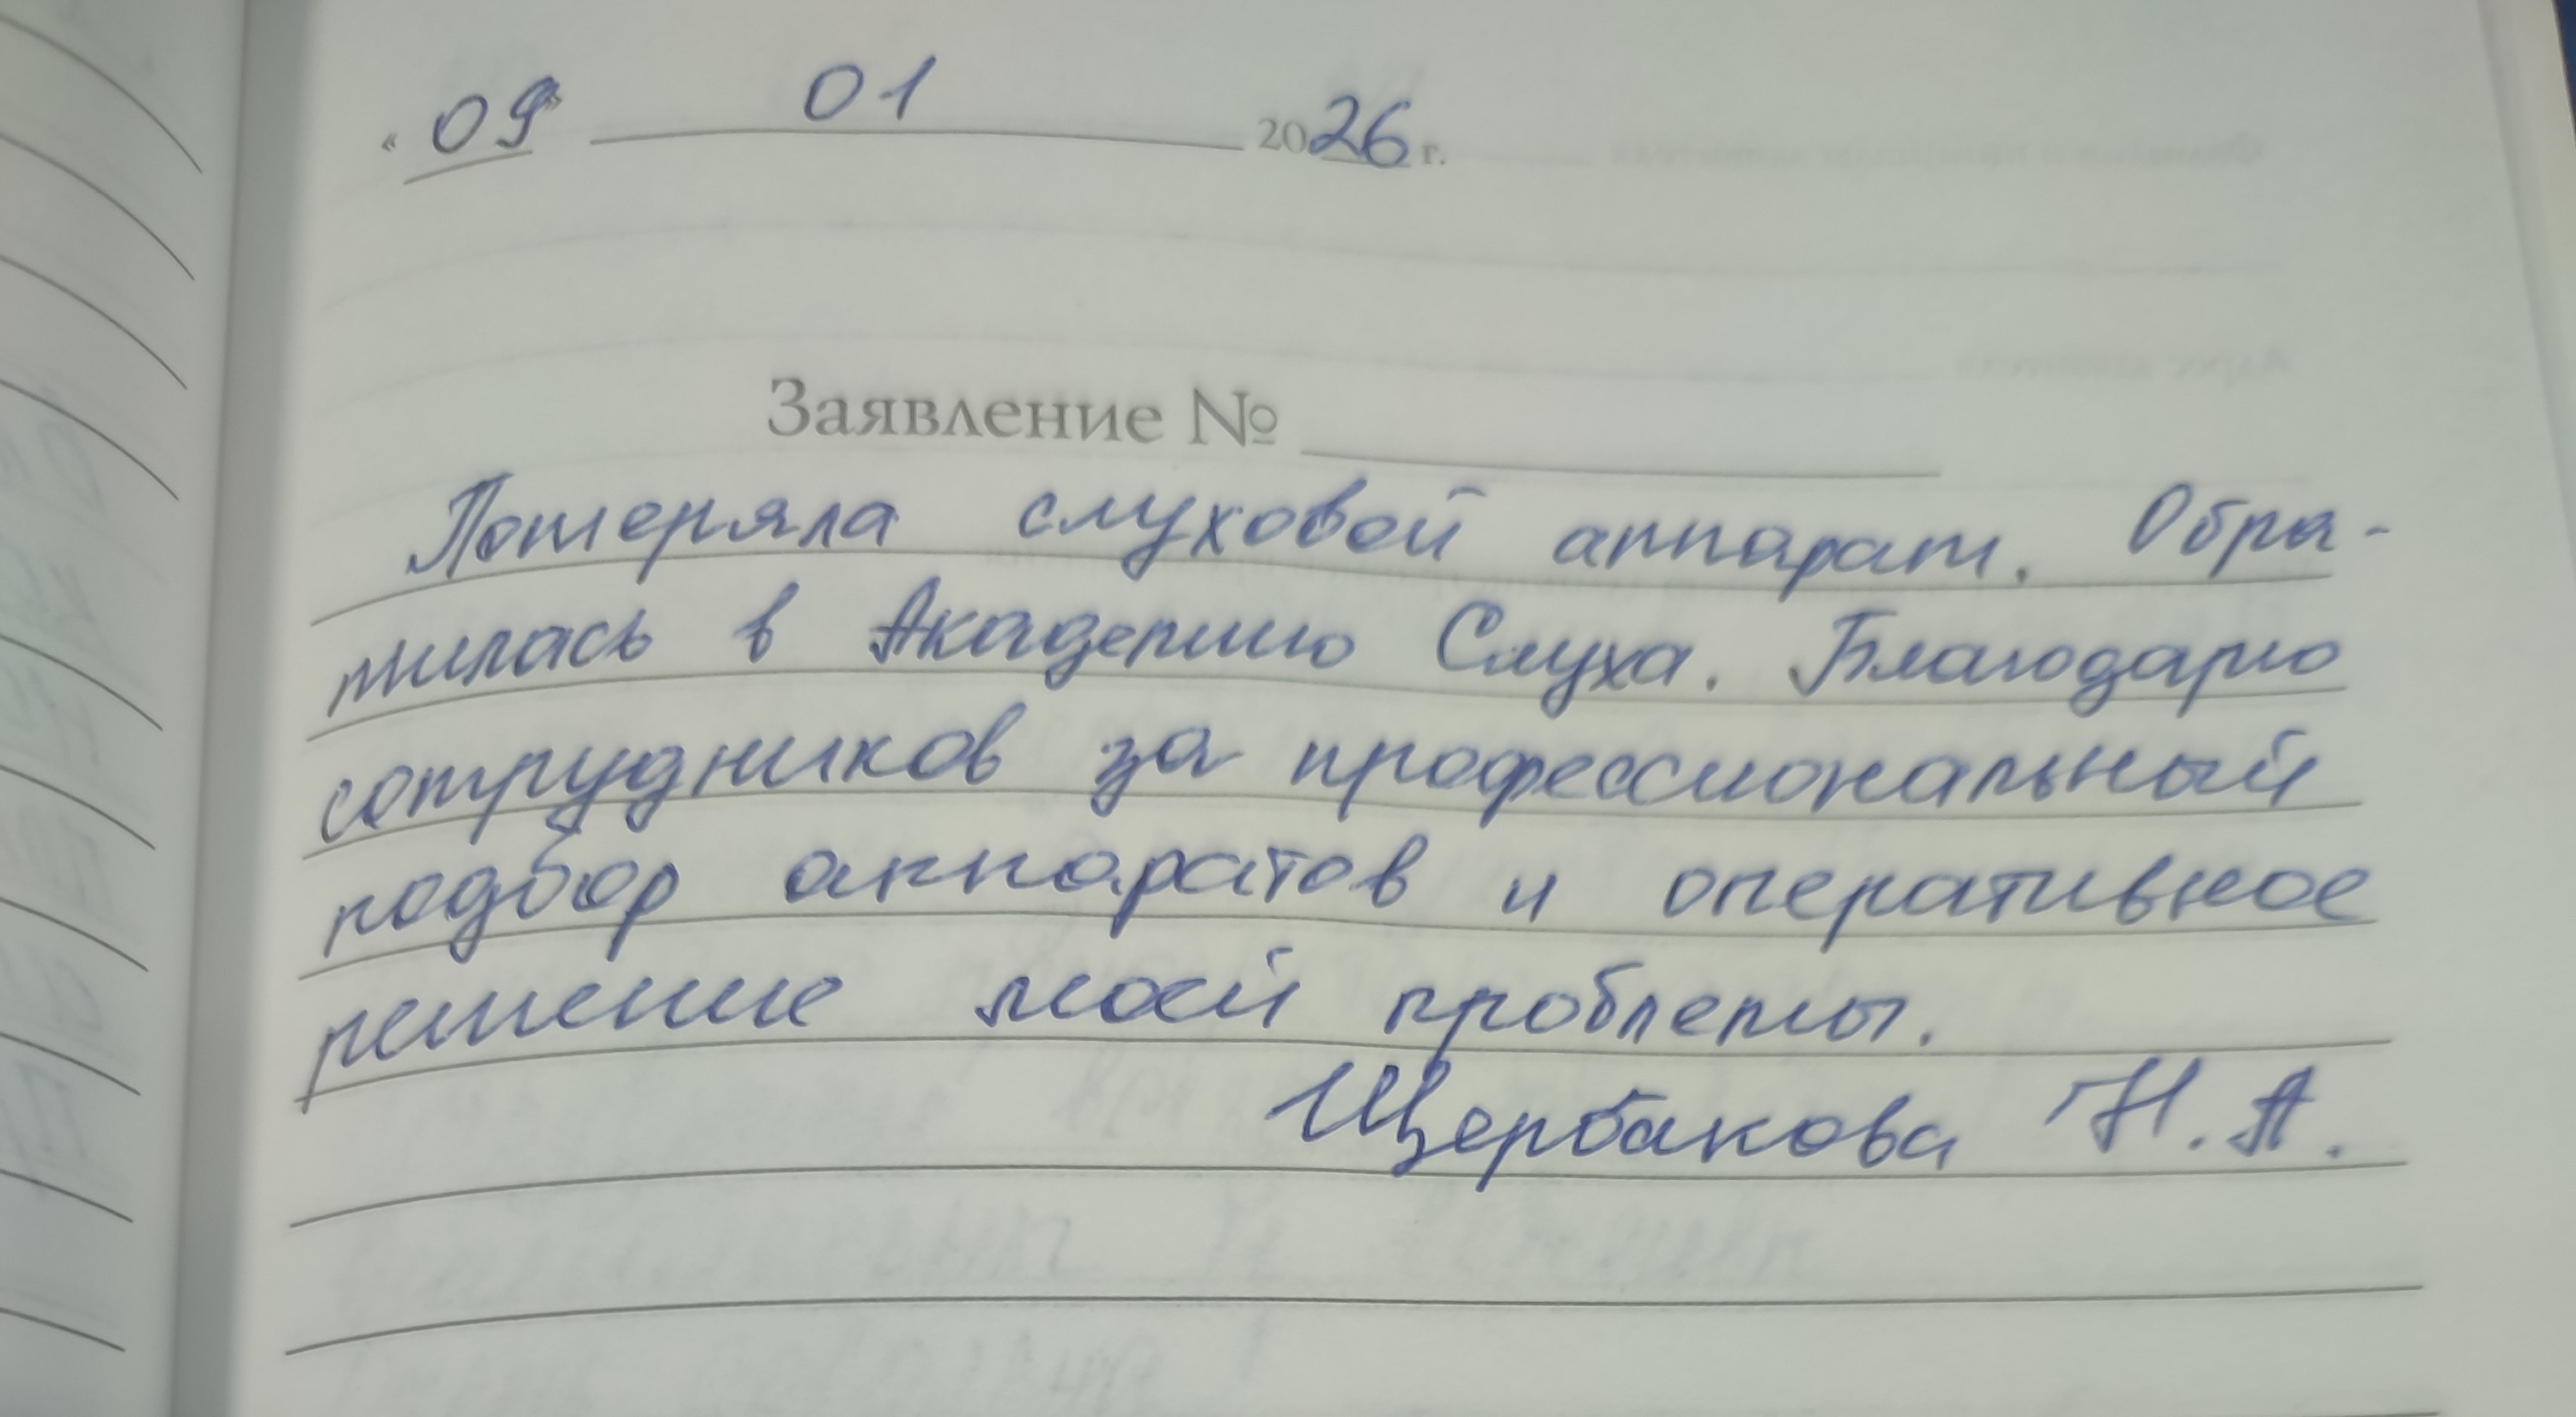 « 09 » 01 2026 г.
Заявление №
Потеряла слуховой аппарат. Обра-
тилась в Академию Слуха. Благодарю
сотрудников за профессиональный
подбор аппаратов и оперативное
решение моей проблемы.
Щербакова Н. А.